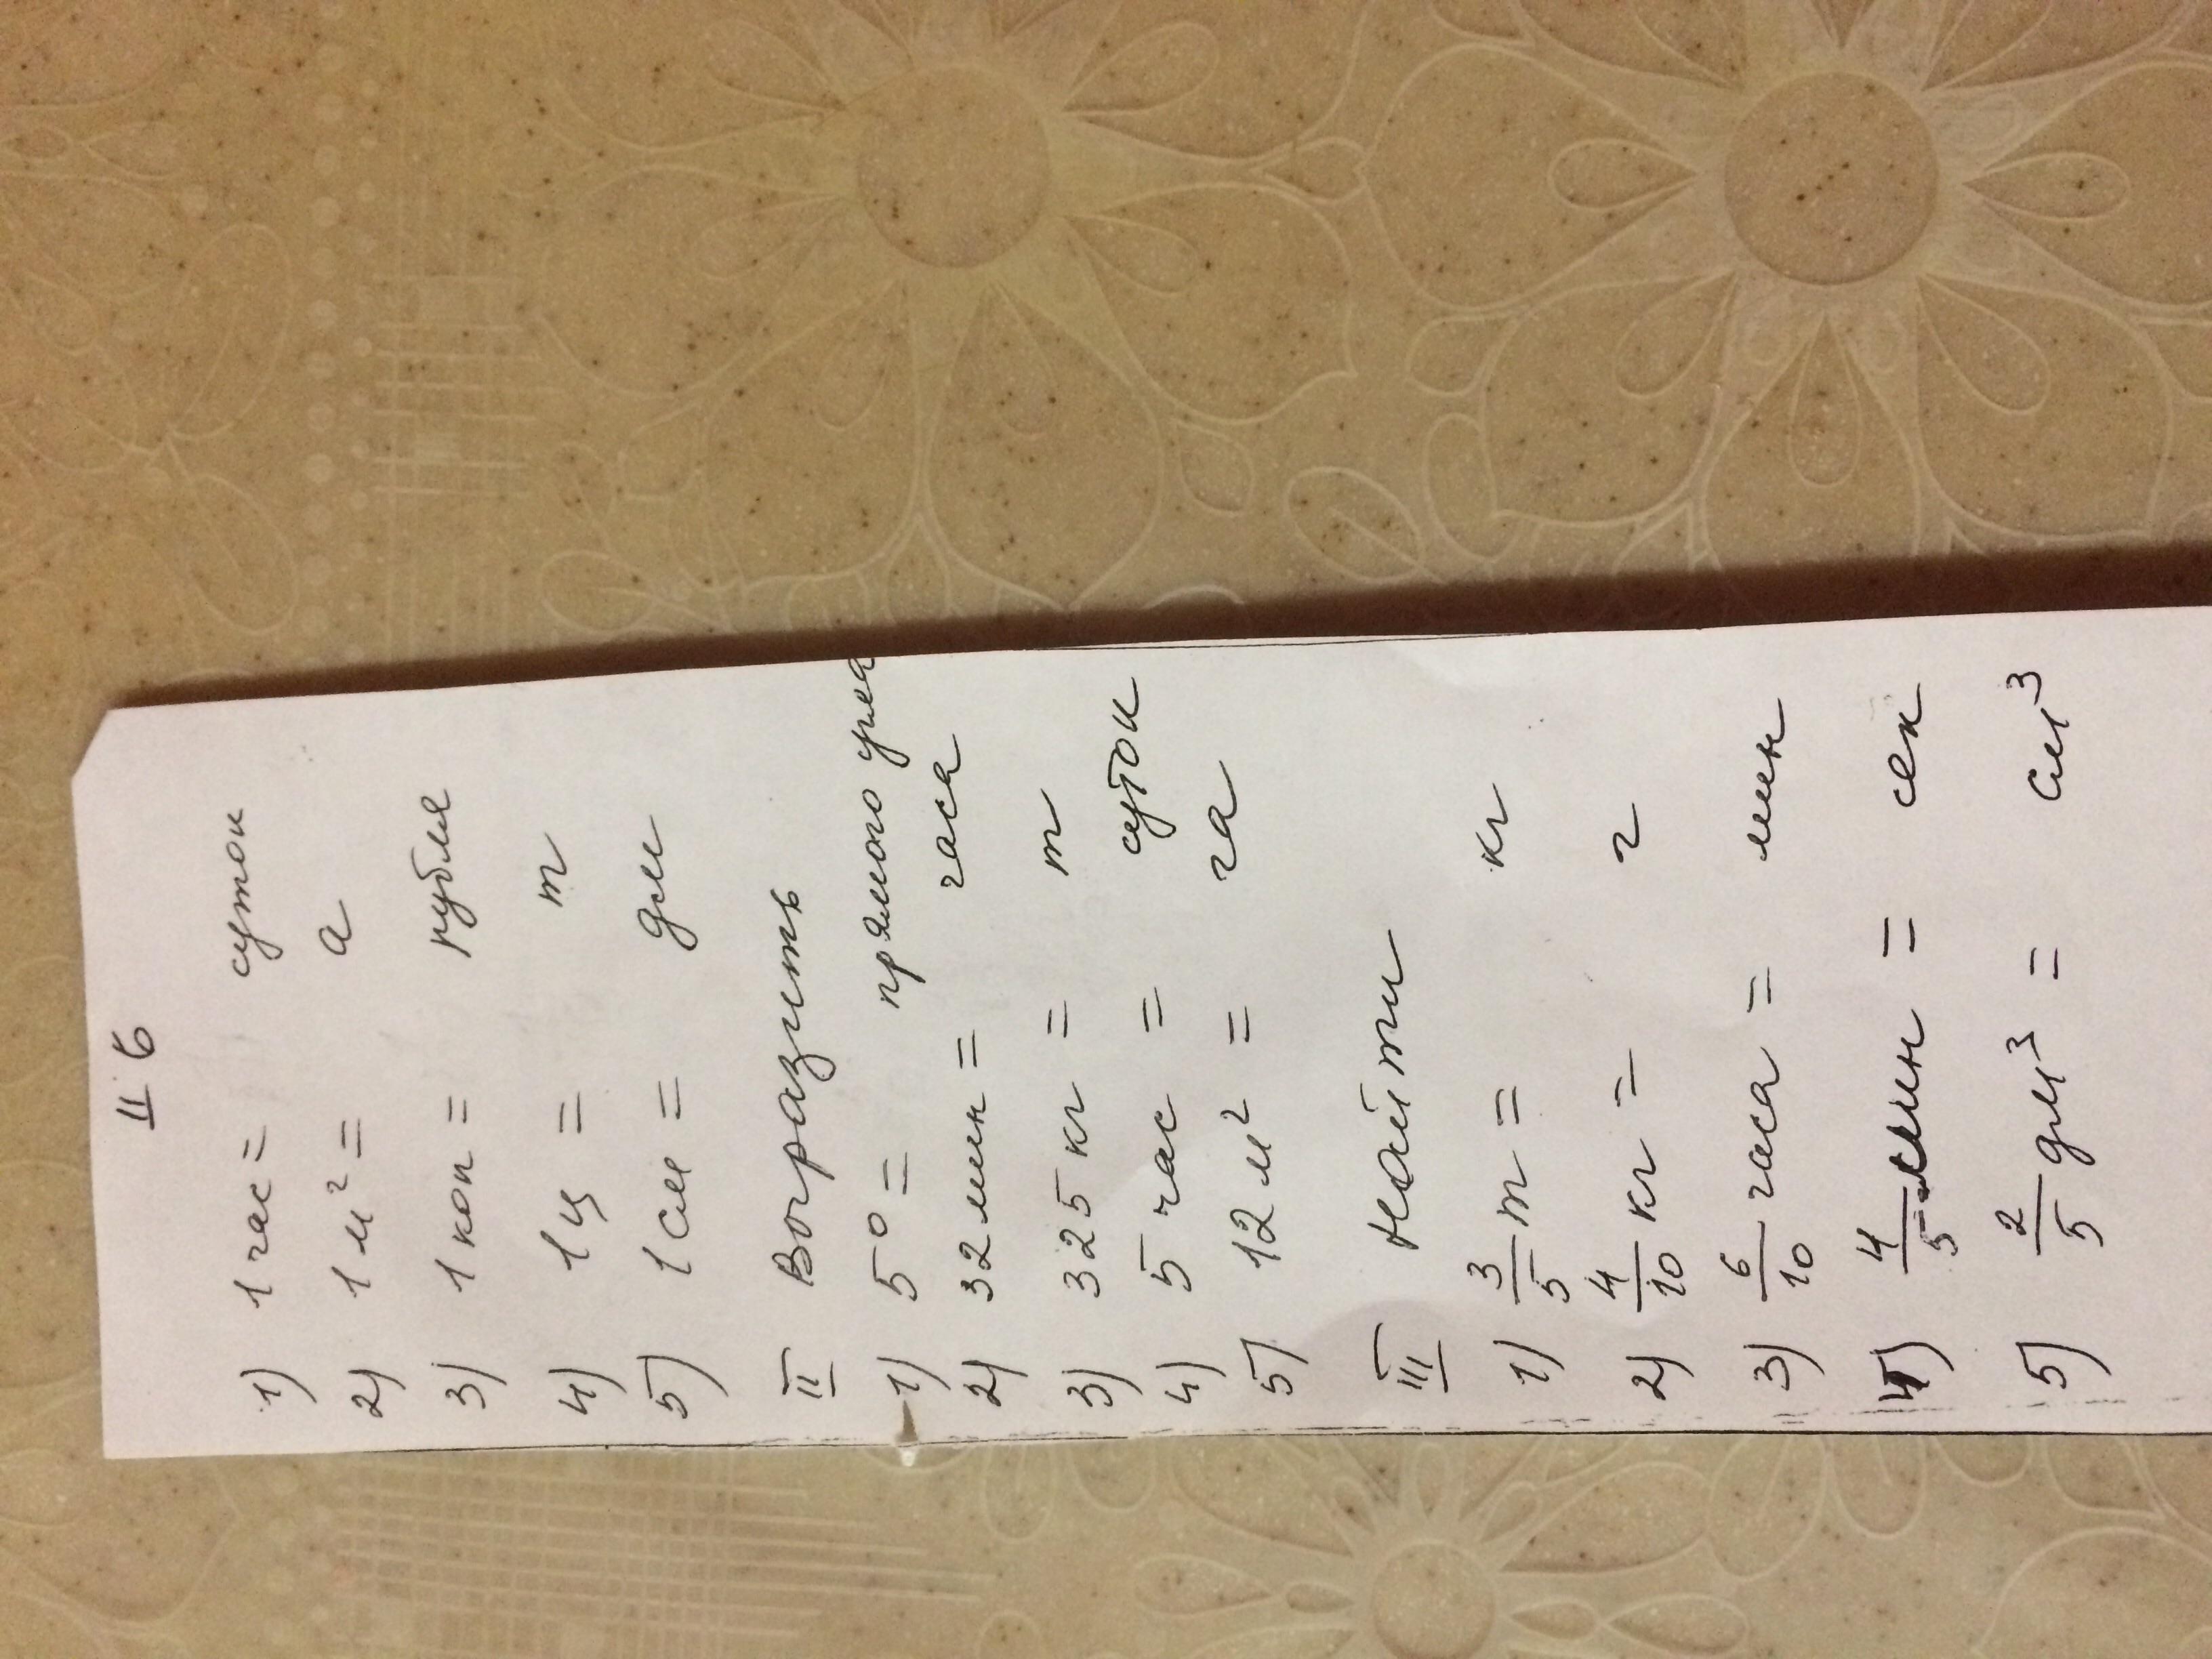 II б
1) 1 час = суток
2) 1 м² = а
3) 1 коп = рубля
4) 1 ц = т
5) 1 см = дм
II Выразить
1) 5° = прямого угла
2) 32 мин = часа
3) 325 кг = т
4) 5 час = суток
5) 12 м² = га
III Найти
1) 3/5 т = кг
2) 4/10 кг = г
3) 6/10 часа = мин
4) 4/5 мин = сек
5) 2/5 дм³ = см³